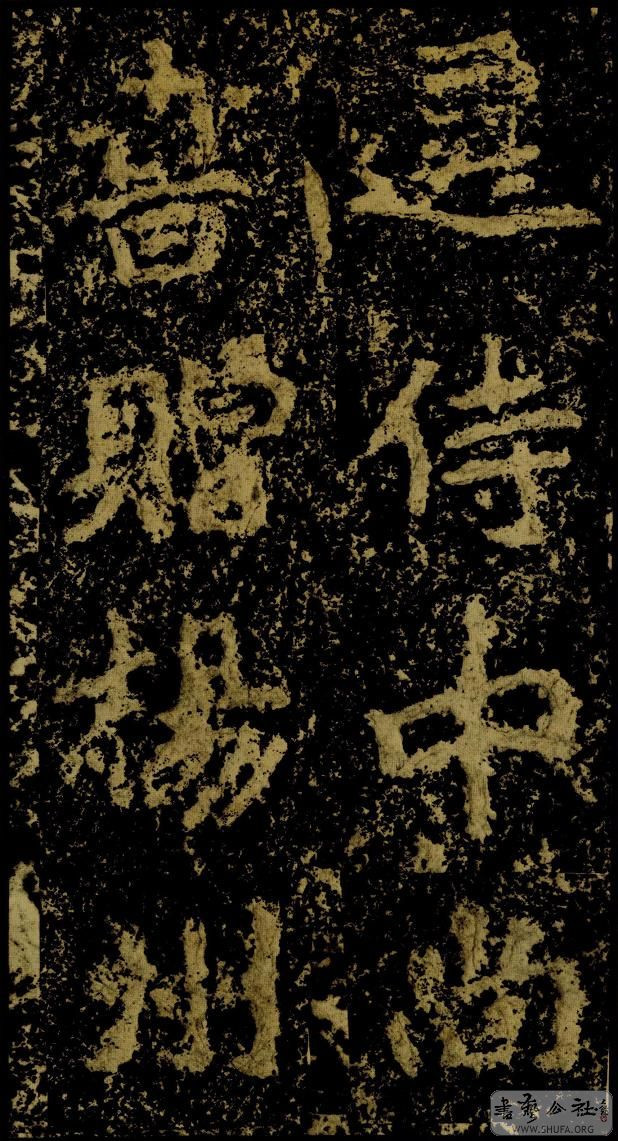 侍中尚
書贈楊州
書藝公社
WWW.SHUFA.ORG